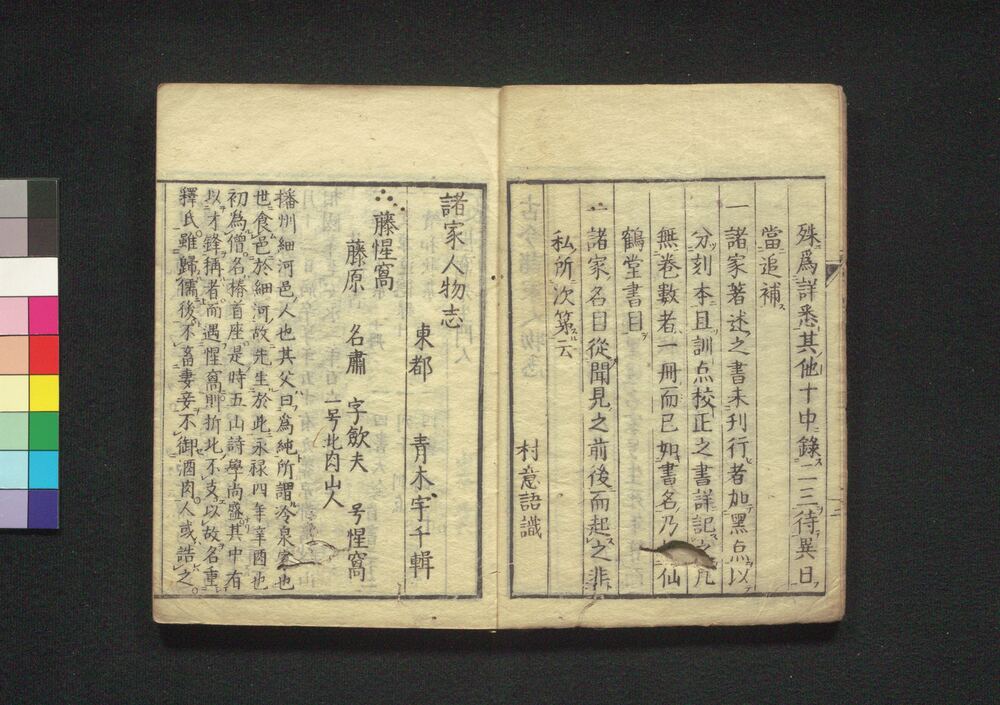 殊為詳悉其他十中錄一二三待異日
當追補
一諸家著述之書未刊行者加黑点以
分刻本且訓点校正之書詳記之凡
無卷數者一冊而已如書名乃仙
鶴堂書目
一諸家名目從聞見之前後而起之非
私所次第云
村意語識
諸家人物志
東都 青木宇千輯
藤惺窩
藤原 名肅 字歛夫 号惺窩
一号北肉山人
播州細河邑人也其父曰為純所謂冷泉家也
世食邑於細河故先生於此永禄四年辛酉也
初為僧名椿首座是時五山詩學尚盛其中有
以才鋒稱者而遇惺窩則折北不支以故名重
釋氏雖歸儒後不畜妻妾不御酒肉人或詰之